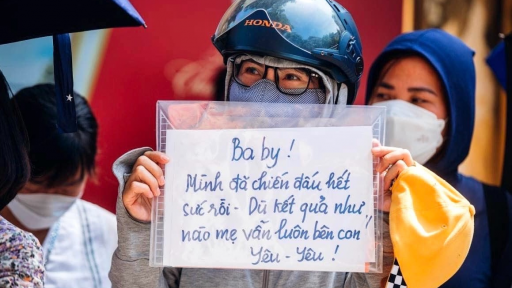 HONDA
Baby!
Mình đã chiến đấu hết
sức rồi - Dù kết quả như
nào mẹ vẫn luôn bên con
Yêu - Yêu!